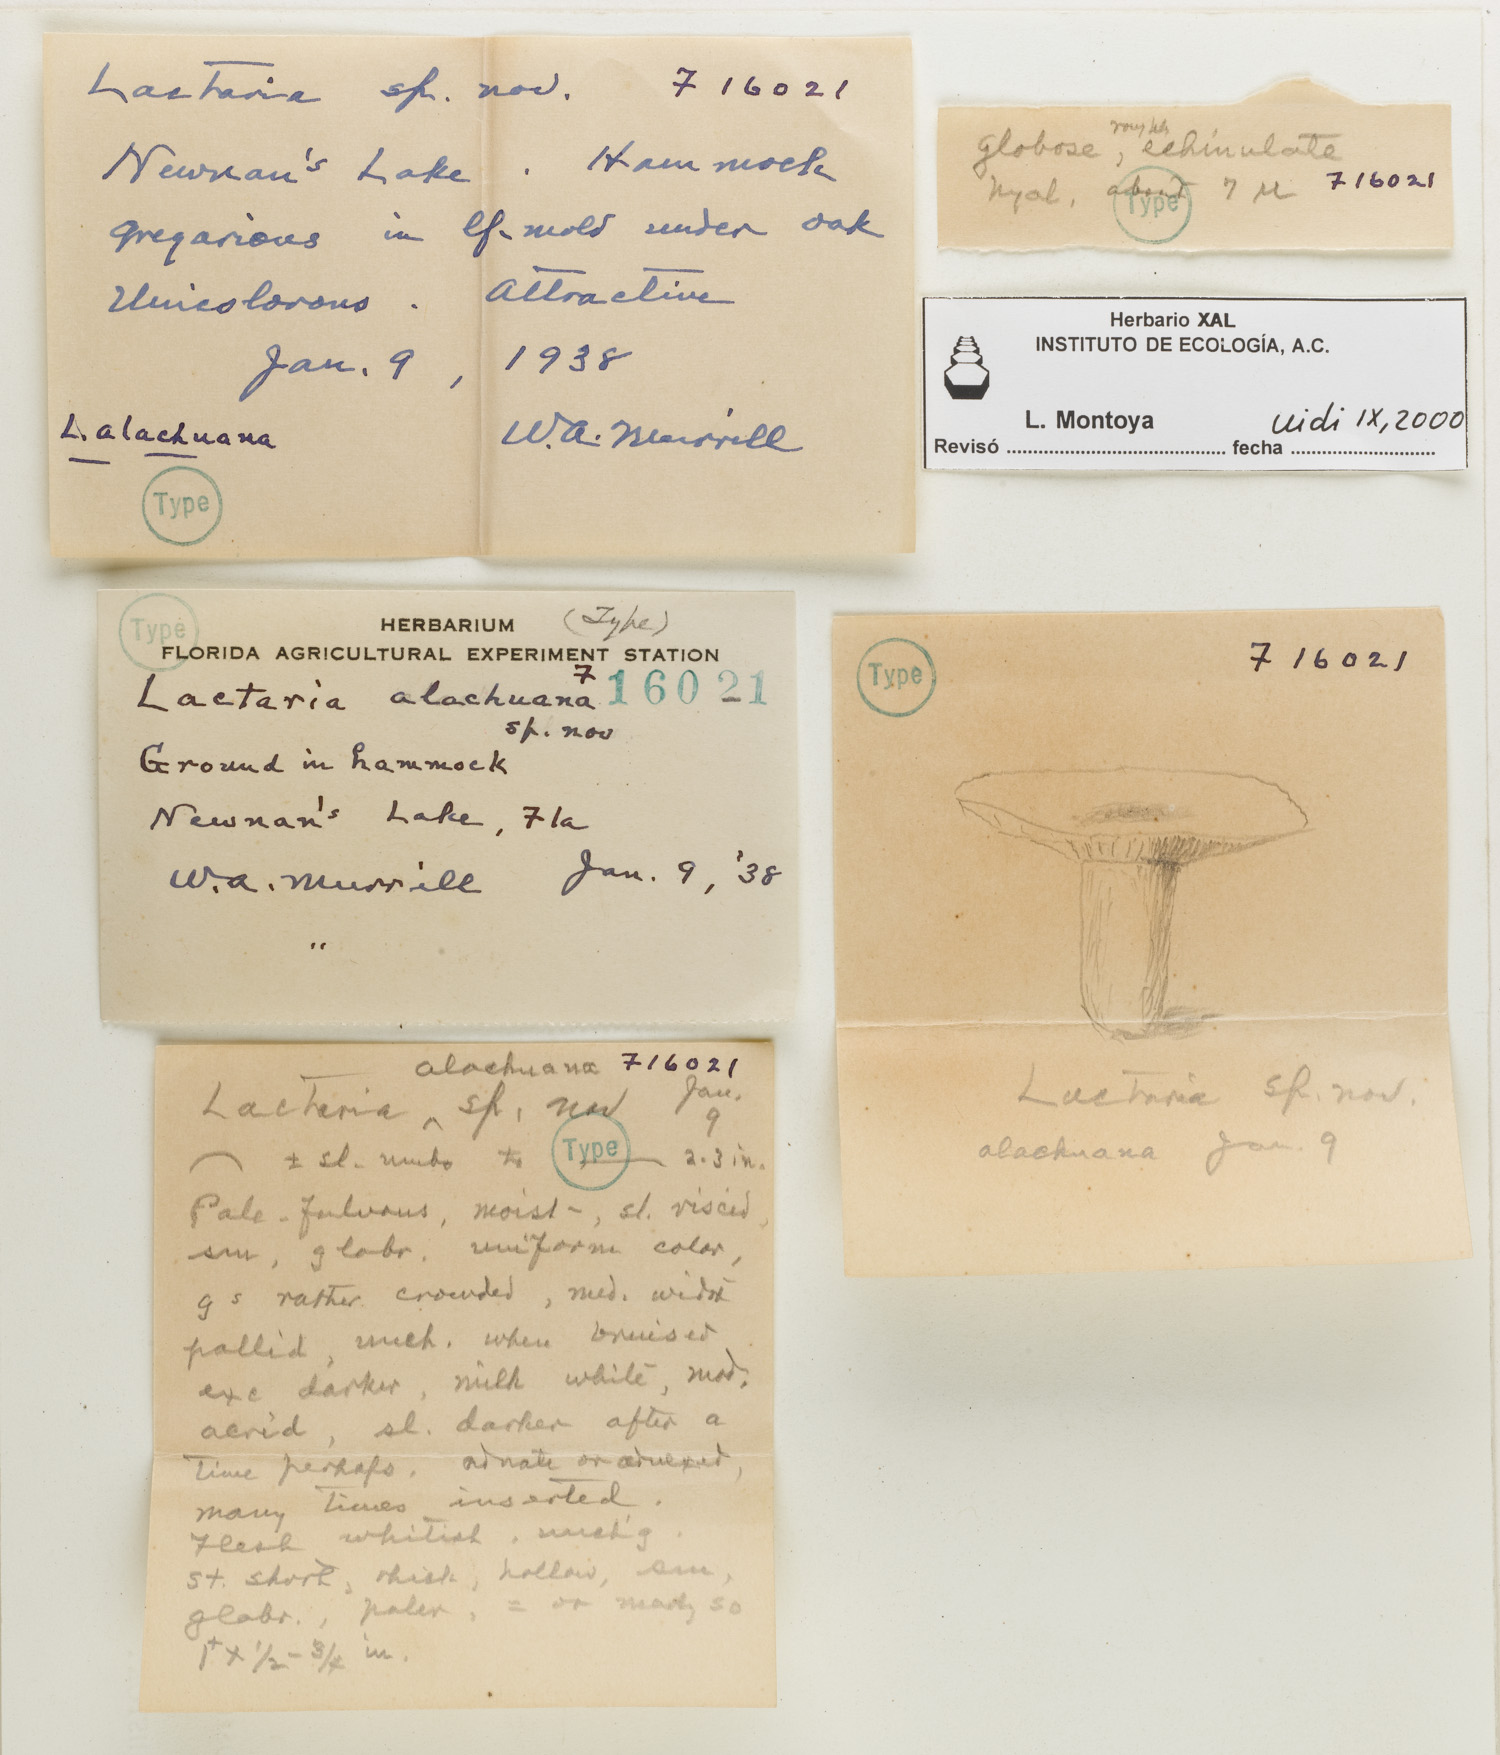 Lactaria sp. nov. F 16021
Newnan's Lake. Hammock
gregarious in lf-mold under oak
Unicolorous. Attractive
Jan. 9, 1938
L. alachuana W.A. Murrill
Type
globose, roughly echinulate
hyal, about 7 µ F16021
Type
Herbario XAL
INSTITUTO DE ECOLOGÍA, A.C.
L. Montoya vidi IX, 2000
Revisó ........................................ fecha ..........................
Type
HERBARIUM (Type)
FLORIDA AGRICULTURAL EXPERIMENT STATION
Lactaria alachuana F 16021
sp. nov
Ground in hammock
Newnan's Lake, Fla
W.A. Murrill Jan. 9, '38
"
Type
F 16021
Lactaria sp. nov.
alachuana Jan. 9
alachuana F16021
Lactaria ^ sp. nov Jan. 9
± sl. umbo to 2-3 in.
Type
Pale-fulvous, moist-, sl. viscid,
sm, glabr. uniform color,
gs rather crowded, med. width
pallid, unch. when bruised
exc darker, milk white, mod.
acrid, sl. darker after a
time perhaps. adnate or adnexed,
many times inserted.
Flesh whitish. unch'g.
St. short, thick, hollow, sm,
glabr., paler, = or nearly so
1+ x 1/2 - 3/4 in.